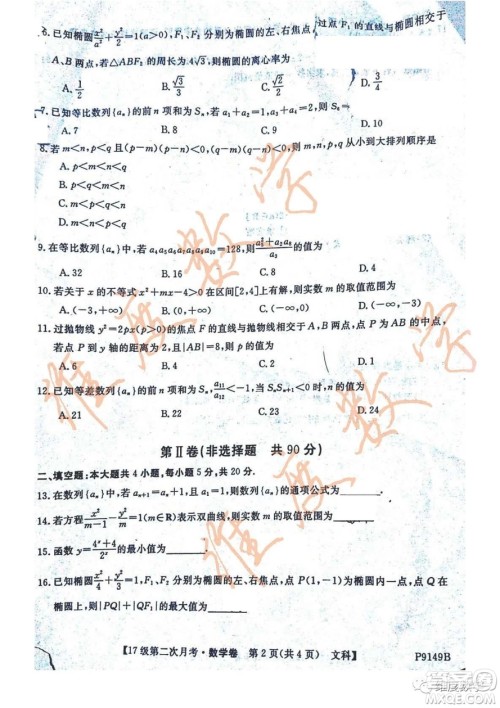 6. 已知椭圆x²/a²+y²/2=1(a>0),F₁、F₂分别为椭圆的左、右焦点,过点F₁的直线与椭圆相交于
A、B两点,若△ABF₂的周长为4√3,则椭圆的离心率为
A. 1/2 B. √3/3 C. √2/2 D. 3/4
7. 已知等比数列{aₙ}的前n项和为Sₙ,若
A. 7 B. 8 C. 9 D. 10
8. 若m<n,p<q且(p-m)(p-n)<0,(q-m)(q-n)<0,则m,n,p,q从小到大排列顺序是
A. p<m<n<q
B. m<p<q<n
C. m<p<n<q
D.
9. 在等比数列{aₙ}中,若
A. 32 B. 16 C. 8 D. 4
10. 若关于x的不等式x²+mx-4>0在区间[2,4]上有解,则实数m的取值范围为
A. (-3,+∞) B. (0,+∞) C. (-∞,0) D. (-∞,-3)
11. 过抛物线y²=2px(p>0)的焦点F的直线与抛物线相交于A,B两点,点P为AB的中点,
若点P到y轴的距离为
A. 6 B. 4 C. 8 D. 2
12. 已知等差数列{aₙ}的前n项和Sₙ,a₁₁/a₁₂<-1,当SₙSₙ₊₁<0时,n的值为
A. 21 B. 22 C. 23 D. 24
第Ⅱ卷(非选择题 共90分)
二、填空题:本大题共4小题,每小题5分,共20分.
13. 在数列{aₙ}中,若
14. 若方程x²/(m-1)-y²/m=1(m∈R)表示双曲线,则实数m的取值范围为
15. 函数y=(4ˣ+4)/2ˣ的最小值为
16. 已知椭圆x²/4+y²/3=1,F₁、F₂分别为椭圆的左、右焦点,点P(1,-1)为椭圆内一点,点Q在
椭圆上,则|QF₁|+|QP|的最大值为
【17级第二次月考·数学卷 第2页(共4页) 文科】
P9149B